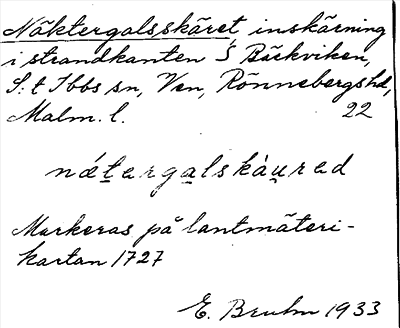 Näktergalsskäret, inskärning
i strandkanten S Bäckviken,
S:t Ibbs sn, Ven, Rönnebergs hd,
Malm. l. 22
nǽtergalskàured
Markeras på lantmäteri-
kartan 1727
E. Bruhn 1933